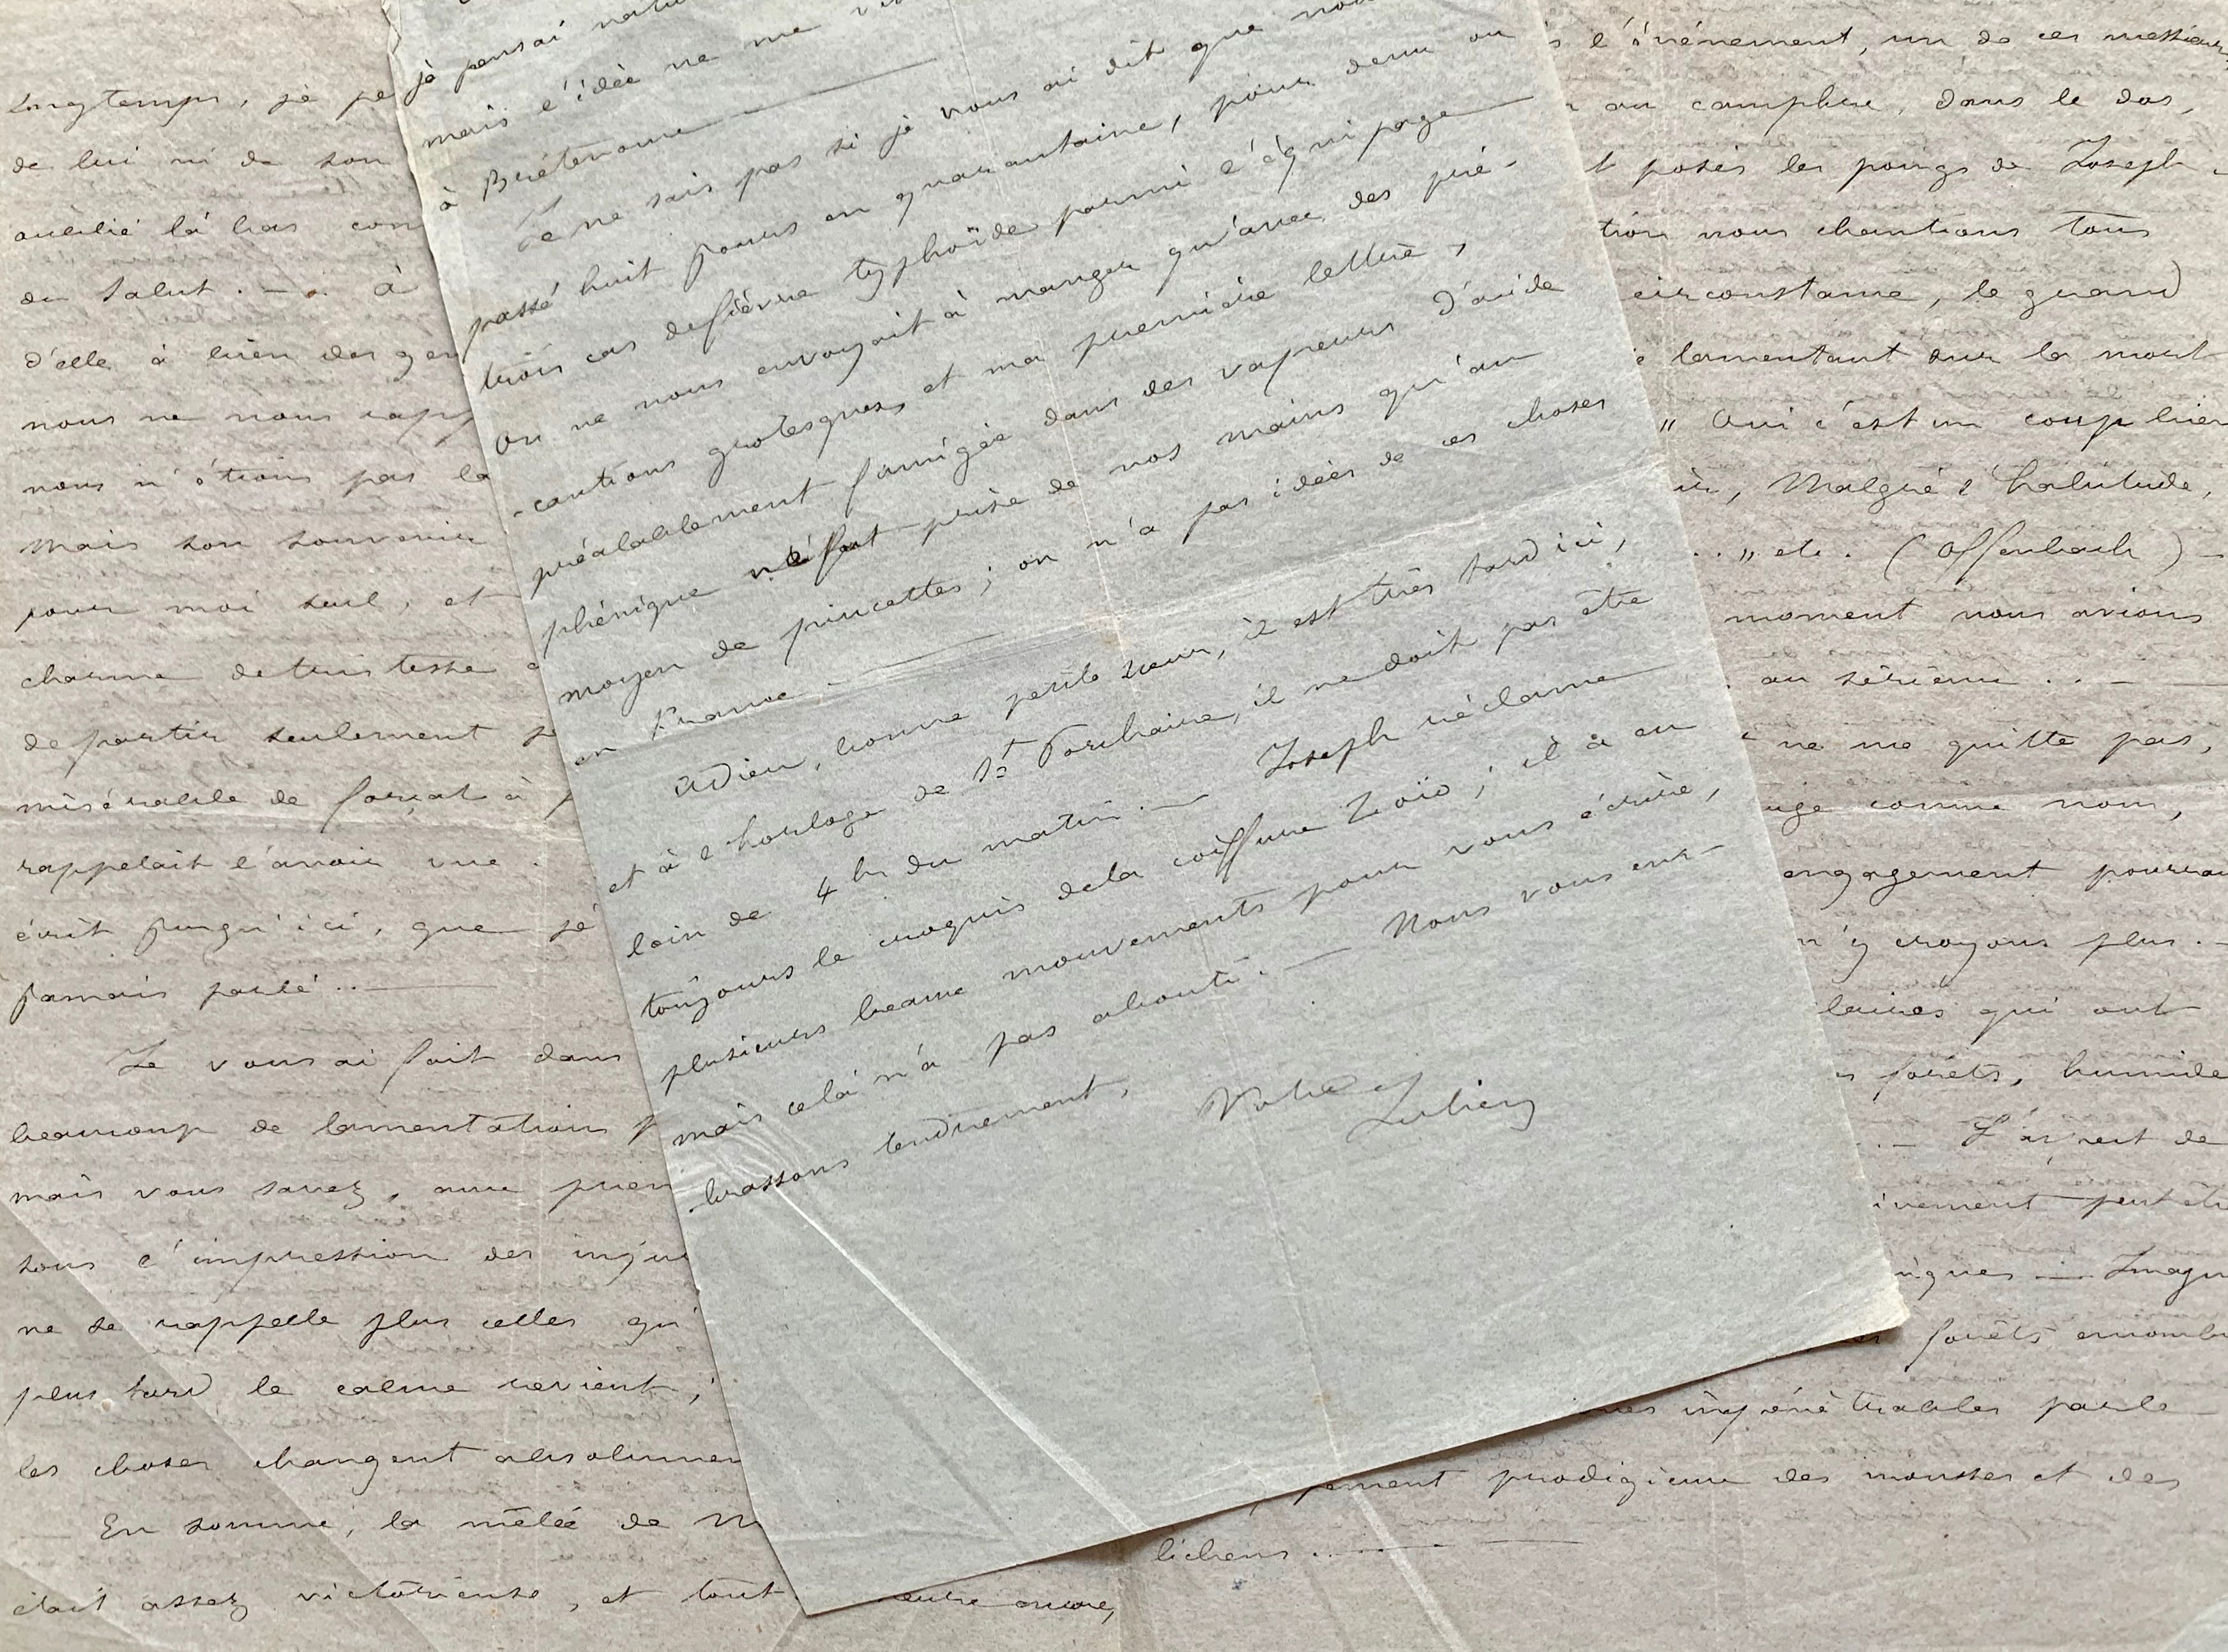 je pensai
mais l'idée ne me
à Bretenoux
Je ne sais pas si je vous ai dit que nous
passé huit jours en quarantaine, pour deux ou
trois cas de fièvre typhoïde parmi l'équipage
On ne nous envoyait à manger qu'avec des pré-
-cautions grotesques, et ma première lettre,
préalablement fumigée dans des vapeurs d'acide
phénique ne fut prise de nos mains qu'au
moyen de pincettes; on n'a pas idée de ces choses
en France.
Adieu, bonne petite sœur, il est très tard ici,
et à l'horloge de St Porchaire, il ne doit pas être
loin de 4 h du matin. — Joseph réclame
toujours le croquis de la coiffure Loïo; il a eu
plusieurs beaux mouvements pour vous écrire,
mais cela n'a pas abouti. — Nous vous em-
-brassons tendrement,
Votre
Julien
longtemps, je pe
de lui ni de son
oublié là bas com
du Salut. — à
d'elle à bien des gen
nous ne nous rapp
nous n'étions pas la
mais son souvenir
pour moi seul, et
charme de tristesse
de partir seulement
misérable de forçat à
rappelait l'avoir vue.
écrit jusqu'ici, que je
jamais parlé..
Je vous ai fait dans
beaucoup de lamentations
mais vous savez, au prem
sous l'impression des inju
ne se rappelle plus celles qu
plus tard le calme revient;
les choses changent absolumen
En somme, la mêlée de M
était assez victorieuse, et tout entre encore,
l'événement, un de ces messieurs
au camphre, dans le dos,
posés les poings de Joseph
tion nous chantions tous
circonstance, le grand
lamentant sur la mort
" Oui c'est un coup bien
Malgré l'habitude,
.." etc. (Offenbach) —
moment nous avions
au sérieux..—
ne me quitte pas,
comme nous,
engagement pourrai
n'y croyons plus.—
laires qui ont
forêts, humide
— L'aspect de
ivement peut êtr
iques — Imagin
forêts encomb
impénétrables par le
pement prodigieux des mousses et des
lichens